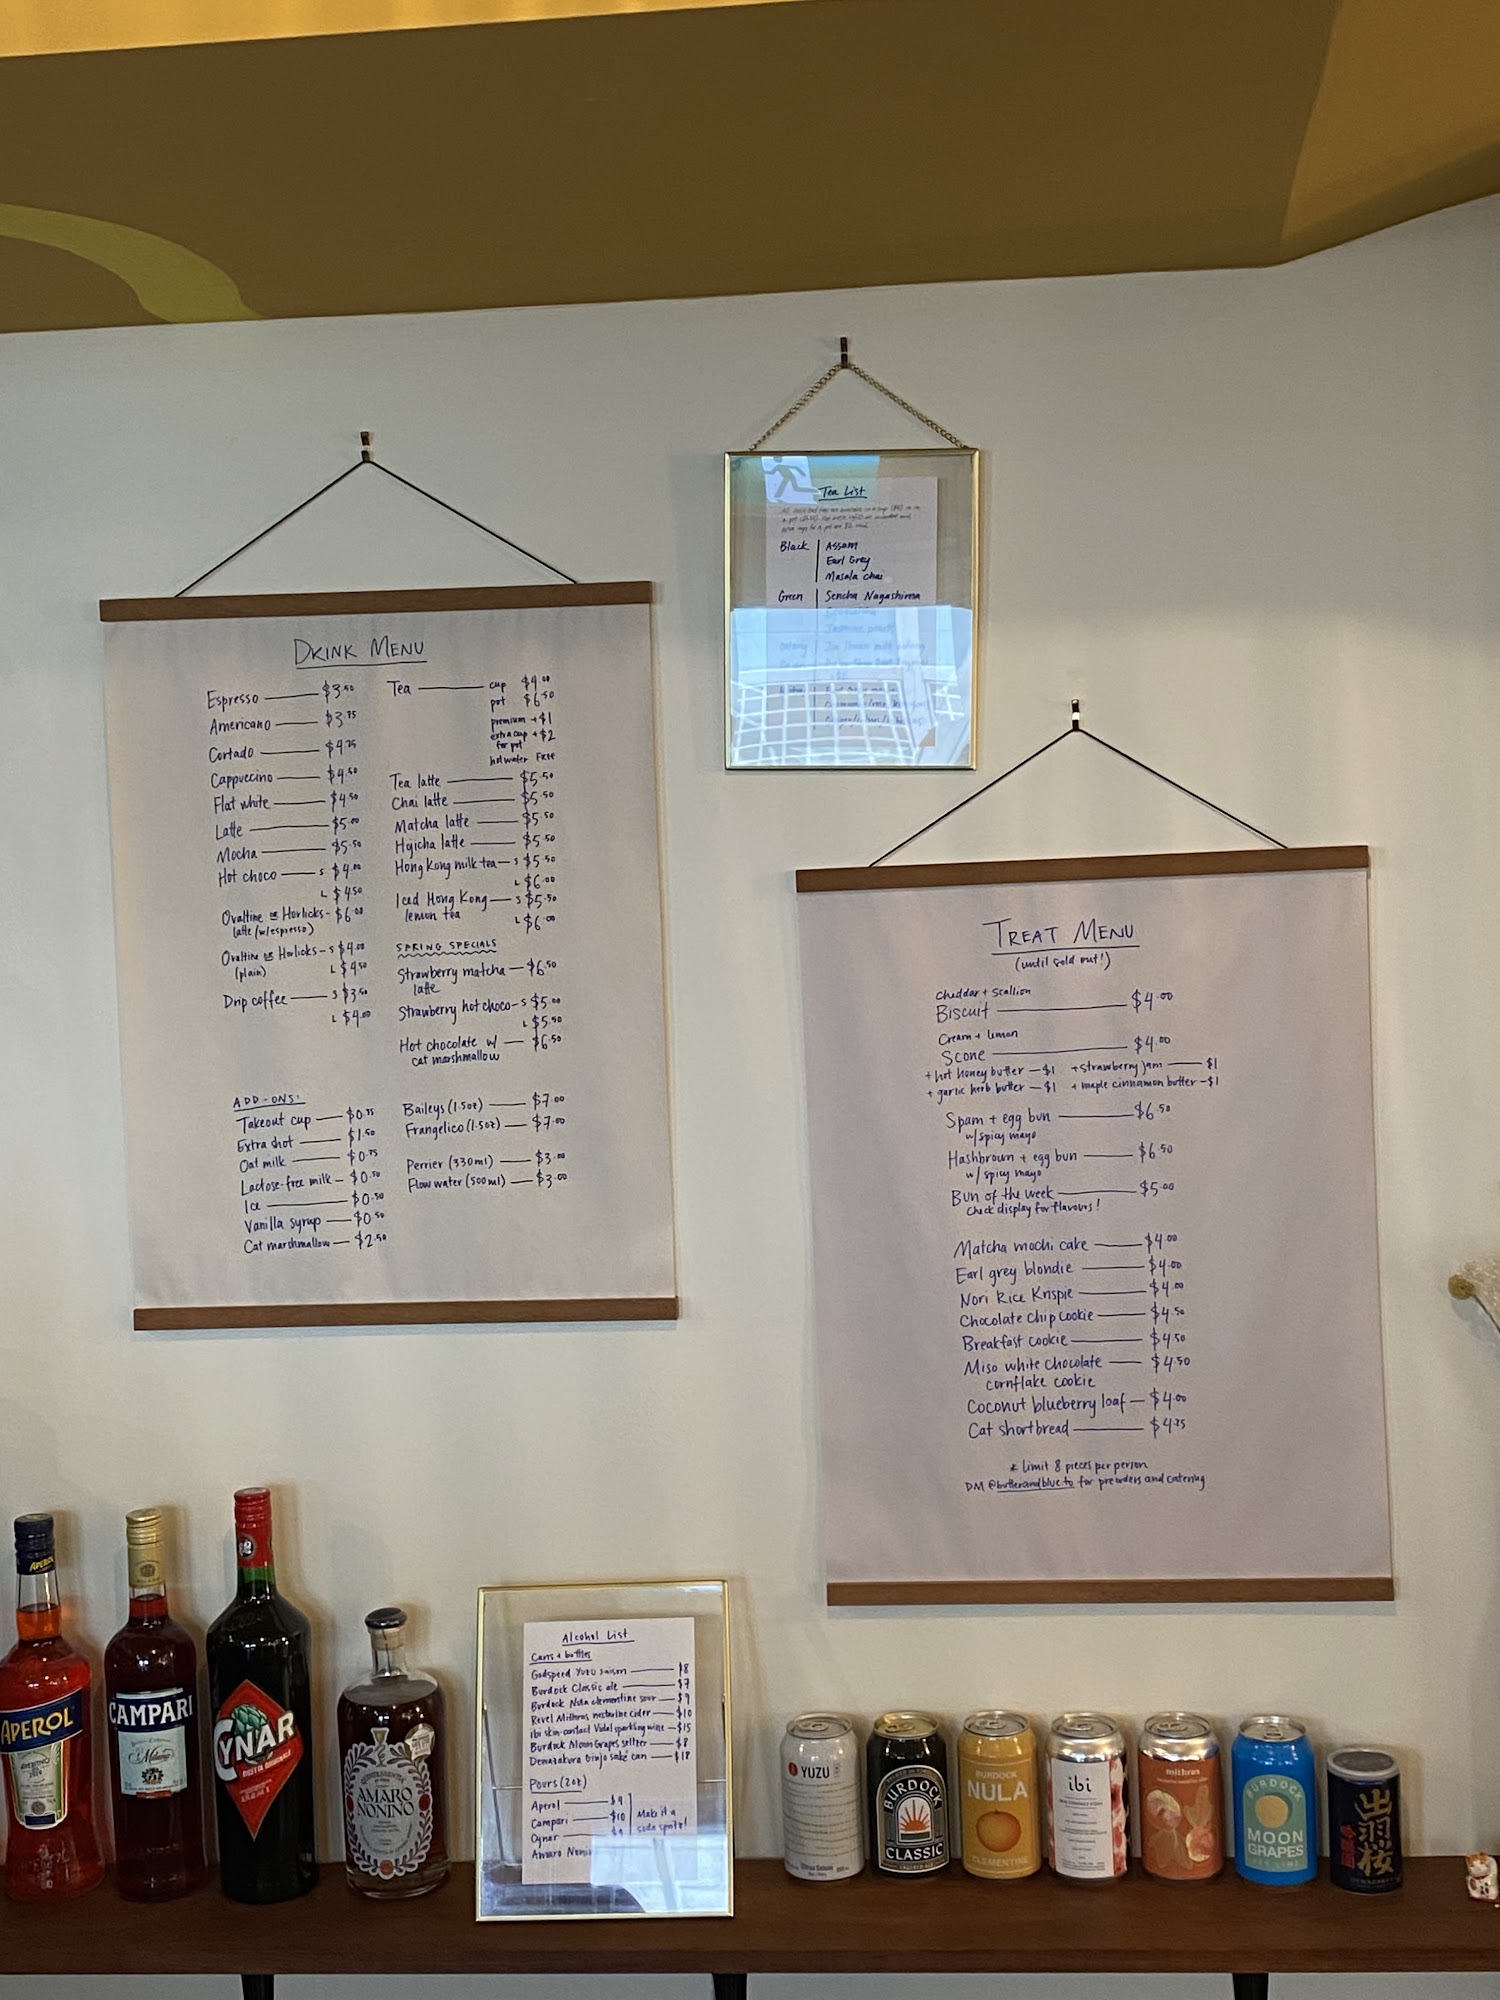 DRINK MENU
Espresso $3.50
Americano $3.75
Cortado $4.25
Cappuccino $4.50
Flat white $4.50
Latte $5.00
Mocha $5.50
Hot choco S $4.00
L $4.50
Ovaltine or Horlicks - $6.00
latte (w/espresso)
Ovaltine or Horlicks - S $4.00
(plain) L $4.50
Drip coffee S $3.50
L $4.00
Tea cup $4.00
pot $6.50
premium +$1
extra cup +$2
for pot
hot water Free
Tea latte $5.50
Chai latte $5.50
Matcha latte $5.50
Hojicha latte $5.50
Hong Kong milk tea S $5.50
L $6.00
Iced Hong Kong S $5.50
lemon tea L $6.00
SPRING SPECIALS
Strawberry matcha $6.50
latte
Strawberry hot choco - S $5.00
L $5.50
Hot chocolate w/ $6.50
cat marshmallow
ADD-ONS:
Takeout cup $0.75
Extra shot $1.50
Oat milk $0.75
Lactose-free milk $0.50
Ice $0.50
Vanilla syrup $0.50
Cat marshmallow $2.50
Baileys (1.5oz) $7.00
Frangelico (1.5oz) $7.00
Perrier (330ml) $3.00
Flow water (500ml) $3.00
Tea List
Black Assam
Earl Grey
Masala chai
Green Sencha Nagashima
TREAT MENU
(until sold out!)
Cheddar + scallion
Biscuit $4.00
Cream + lemon
Scone $4.00
+ hot honey butter - $1 + strawberry jam $1
+ garlic herb butter - $1 + maple cinnamon butter - $1
Spam + egg bun $6.50
w/ spicy mayo
Hashbrown + egg bun $6.50
w/ spicy mayo
Bun of the week $5.00
Check display for flavours!
Matcha mochi cake $4.00
Earl grey blondie $4.00
Nori Rice Krispie $4.00
Chocolate chip cookie $4.50
Breakfast cookie $4.50
Miso white chocolate $4.50
cornflake cookie
Coconut blueberry loaf $4.00
Cat shortbread $4.25
* limit 8 pieces per person
DM @butterandblue.to for preorders and catering
Alcohol List
Cans + bottles
Godspeed Yuzu saison $8
Burdock Classic ale $7
Burdock Nula clementine sour $9
Revel Mithras nectarine cider $10
ibi skin-contact Vidal sparkling wine $15
Burdock Moon Grapes seltzer $8
Dewazakura Ginjo saké can $18
Pours (2oz)
Aperol $9
Campari $10
Cynar $9
Amaro Noni
Make it a
soda spritz!
APEROL
APEROL
CAMPARI
Milano
CYNAR
RICETTA ORIGINALE
QUINTESSENTIA
AMARO
NONINO
YUZU
Citrus Saison
BURDOCK
CLASSIC
BURDOCK
NULA
CLEMENTINE
ibi
mithras
BURDOCK
MOON
GRAPES
出羽桜